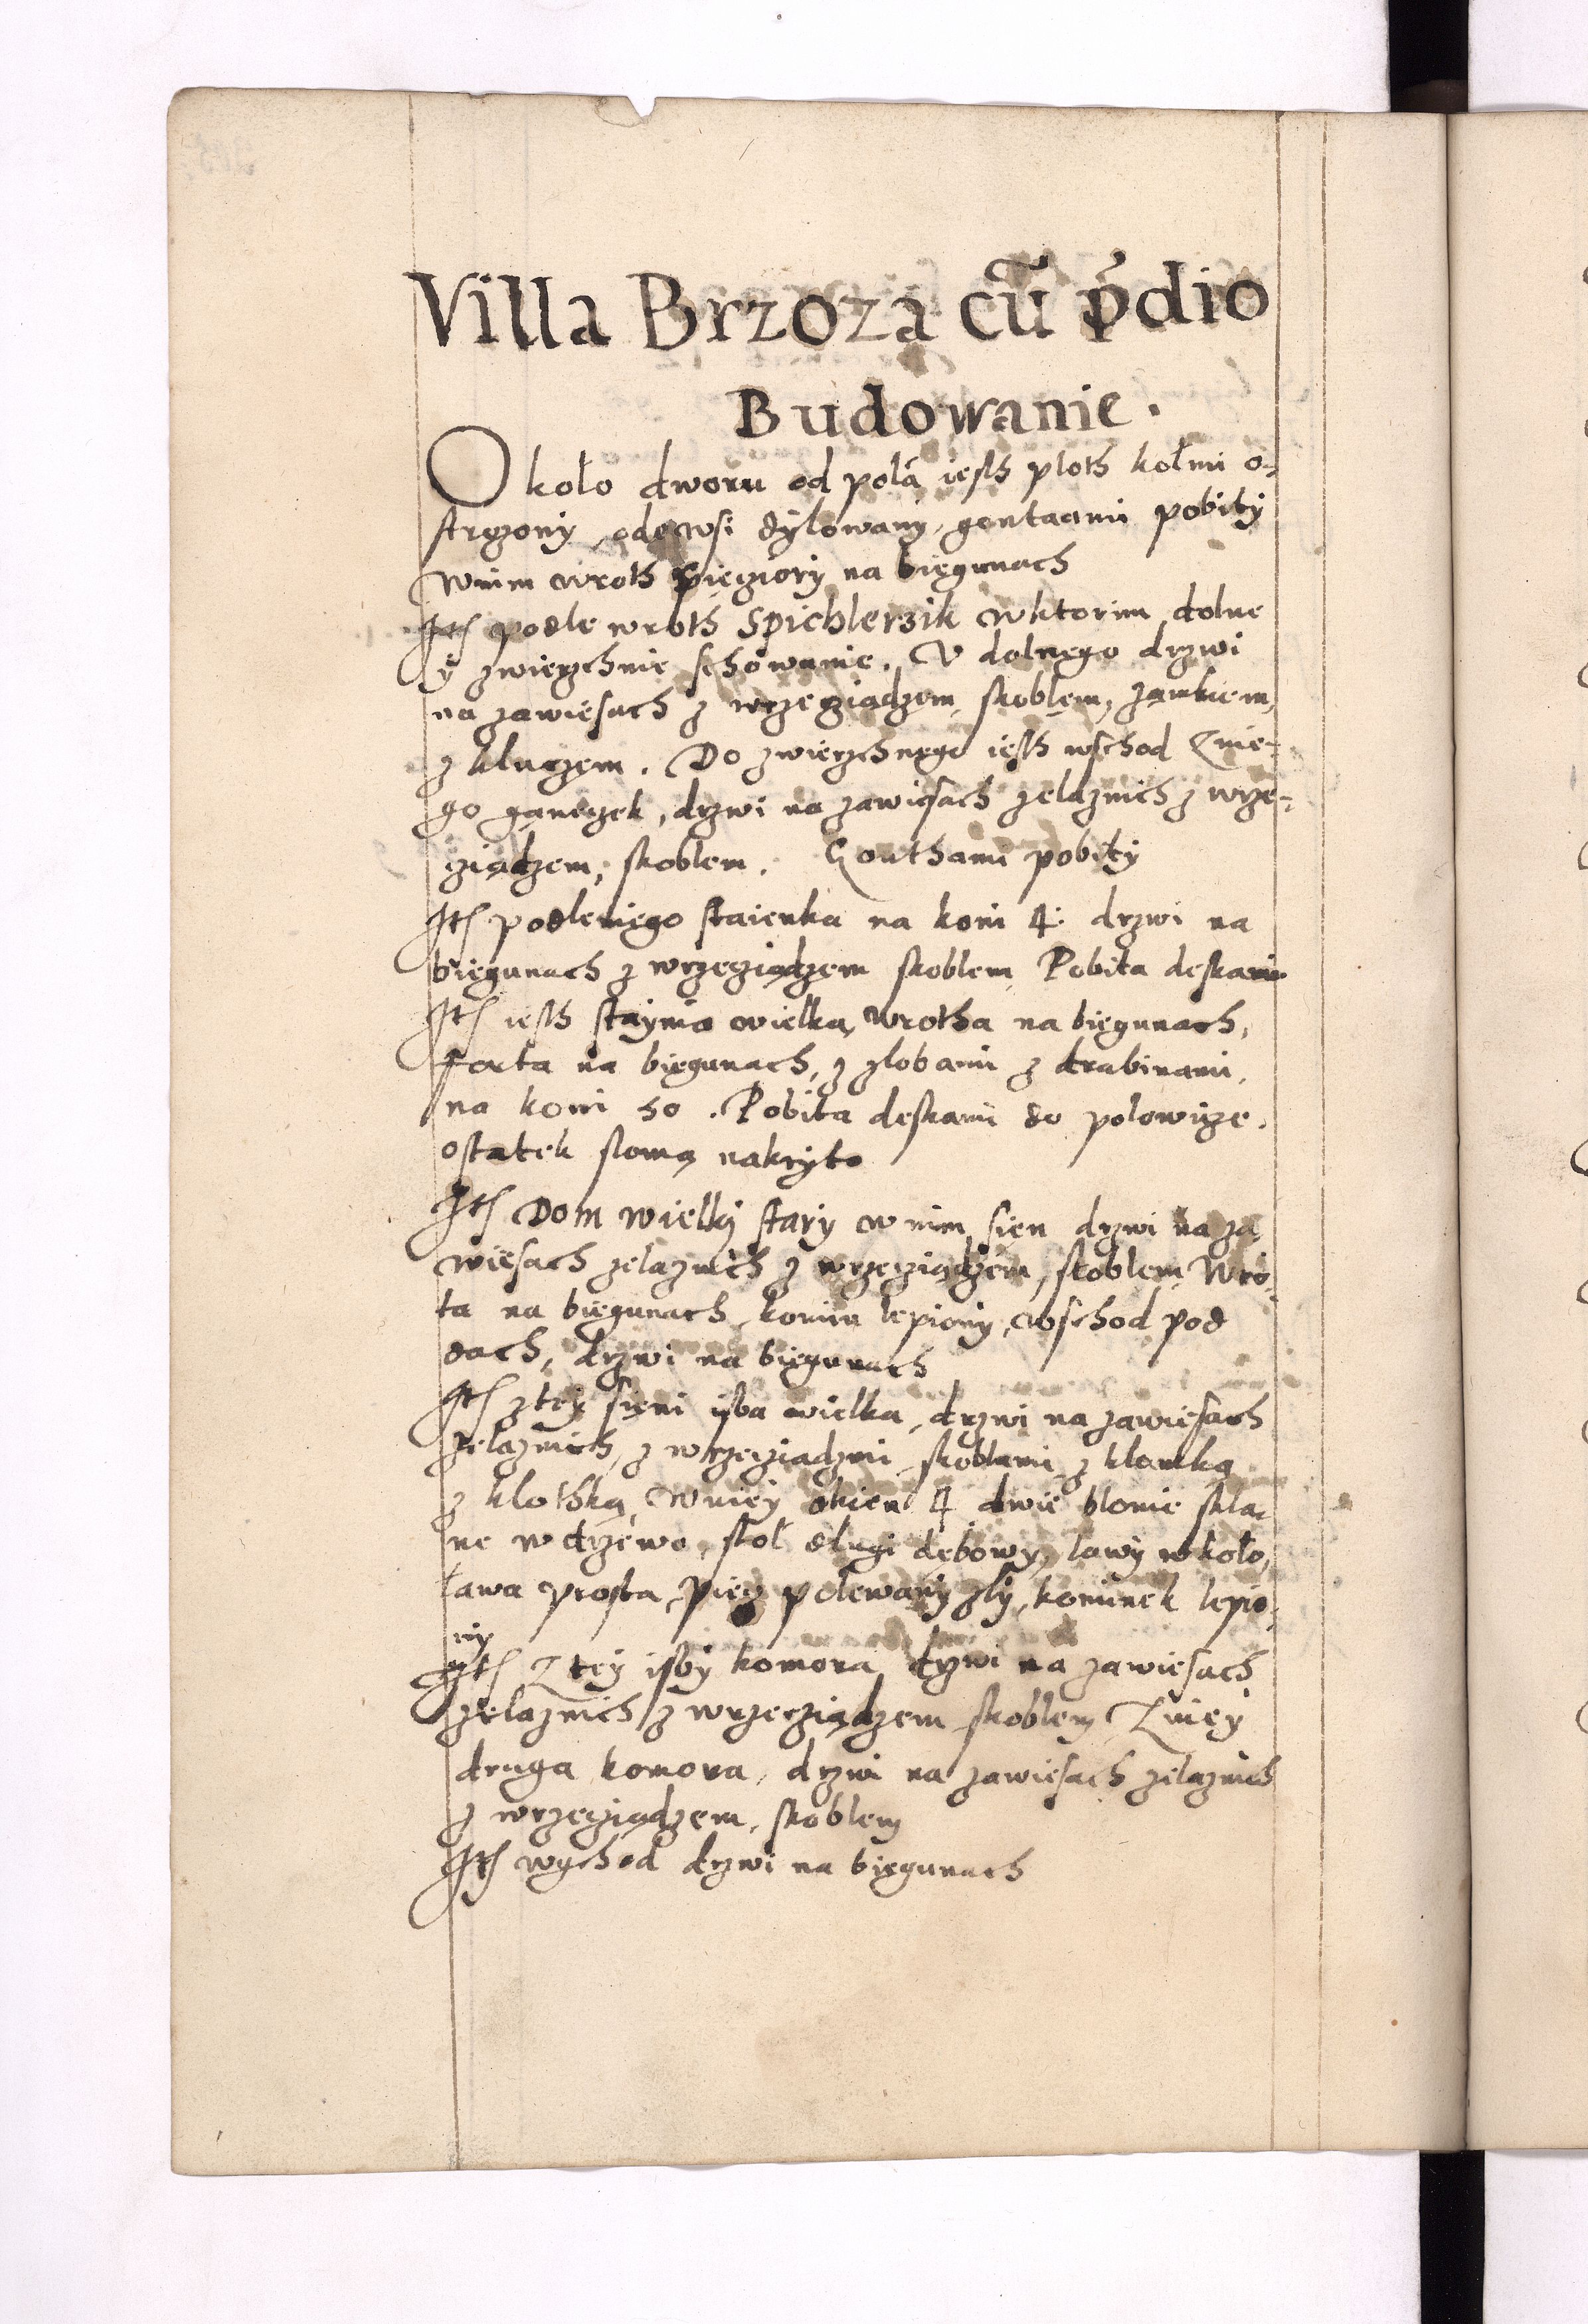 Villa Brzoza cũ p̃dio
Budowanie.
Około dworu od pola iesth płoth kołmi o-
strzony, ode wsi dylowany, gontaami pobity
Wnim wroth pięcziory na biegunach
Itẽ podle wroth Spichlerzik wktorim dolne
ÿ zwierzchnie schowanie. V dolnego drzwi
na zawiesach z wrzecziądzem, skoblem, zamkiem,
z kluczem. Do zwierzchnego iesth wschod Znie-
go ganeczek, drzwi na zawiesach zelaznich z wrze-
cziądzem, skoblem. Gonthami pobity
Itẽ podleniego staienka na koni 4: drzwi na
biegunach z wrzecziądzem skoblem, Pobita deskami
Itẽ iesth staynia wielka, Wrotha na biegunach,
forta na biegunach, z zlobami z drabinami,
na koni 50. Pobita deskami do polowicze.
ostatek słomą nakryto
Itẽ Dom wielkj stary w nim, sien drzwi na za
wiesach zelaznich z wrzecziądzem, skoblem, Wro-
ta na biegunach, komin lepiony, wschod pod
dach, drzwi na biegunach
Itẽ z tey sieni izba wielka, drzwi na zawiesach
zelaznich, z wrzecziadzmi, skoblami z klamką
z klothką, Wniey okien 4 dwie błonie skla-
ne w drzewo, stoł długi dębowy, lawy wkoło,
ława prosta, piecz polewany zły, kominek lepio-
ny
Itẽ Z tey isby komora, drzwi na zawiesach
zelaznich z wrzecziądzem skoblem, Zniey
druga komora, drzwi na zawiesach zelaznich
z wrzecziądzem, skoblem
Itẽ wychod drzwi na biegunach